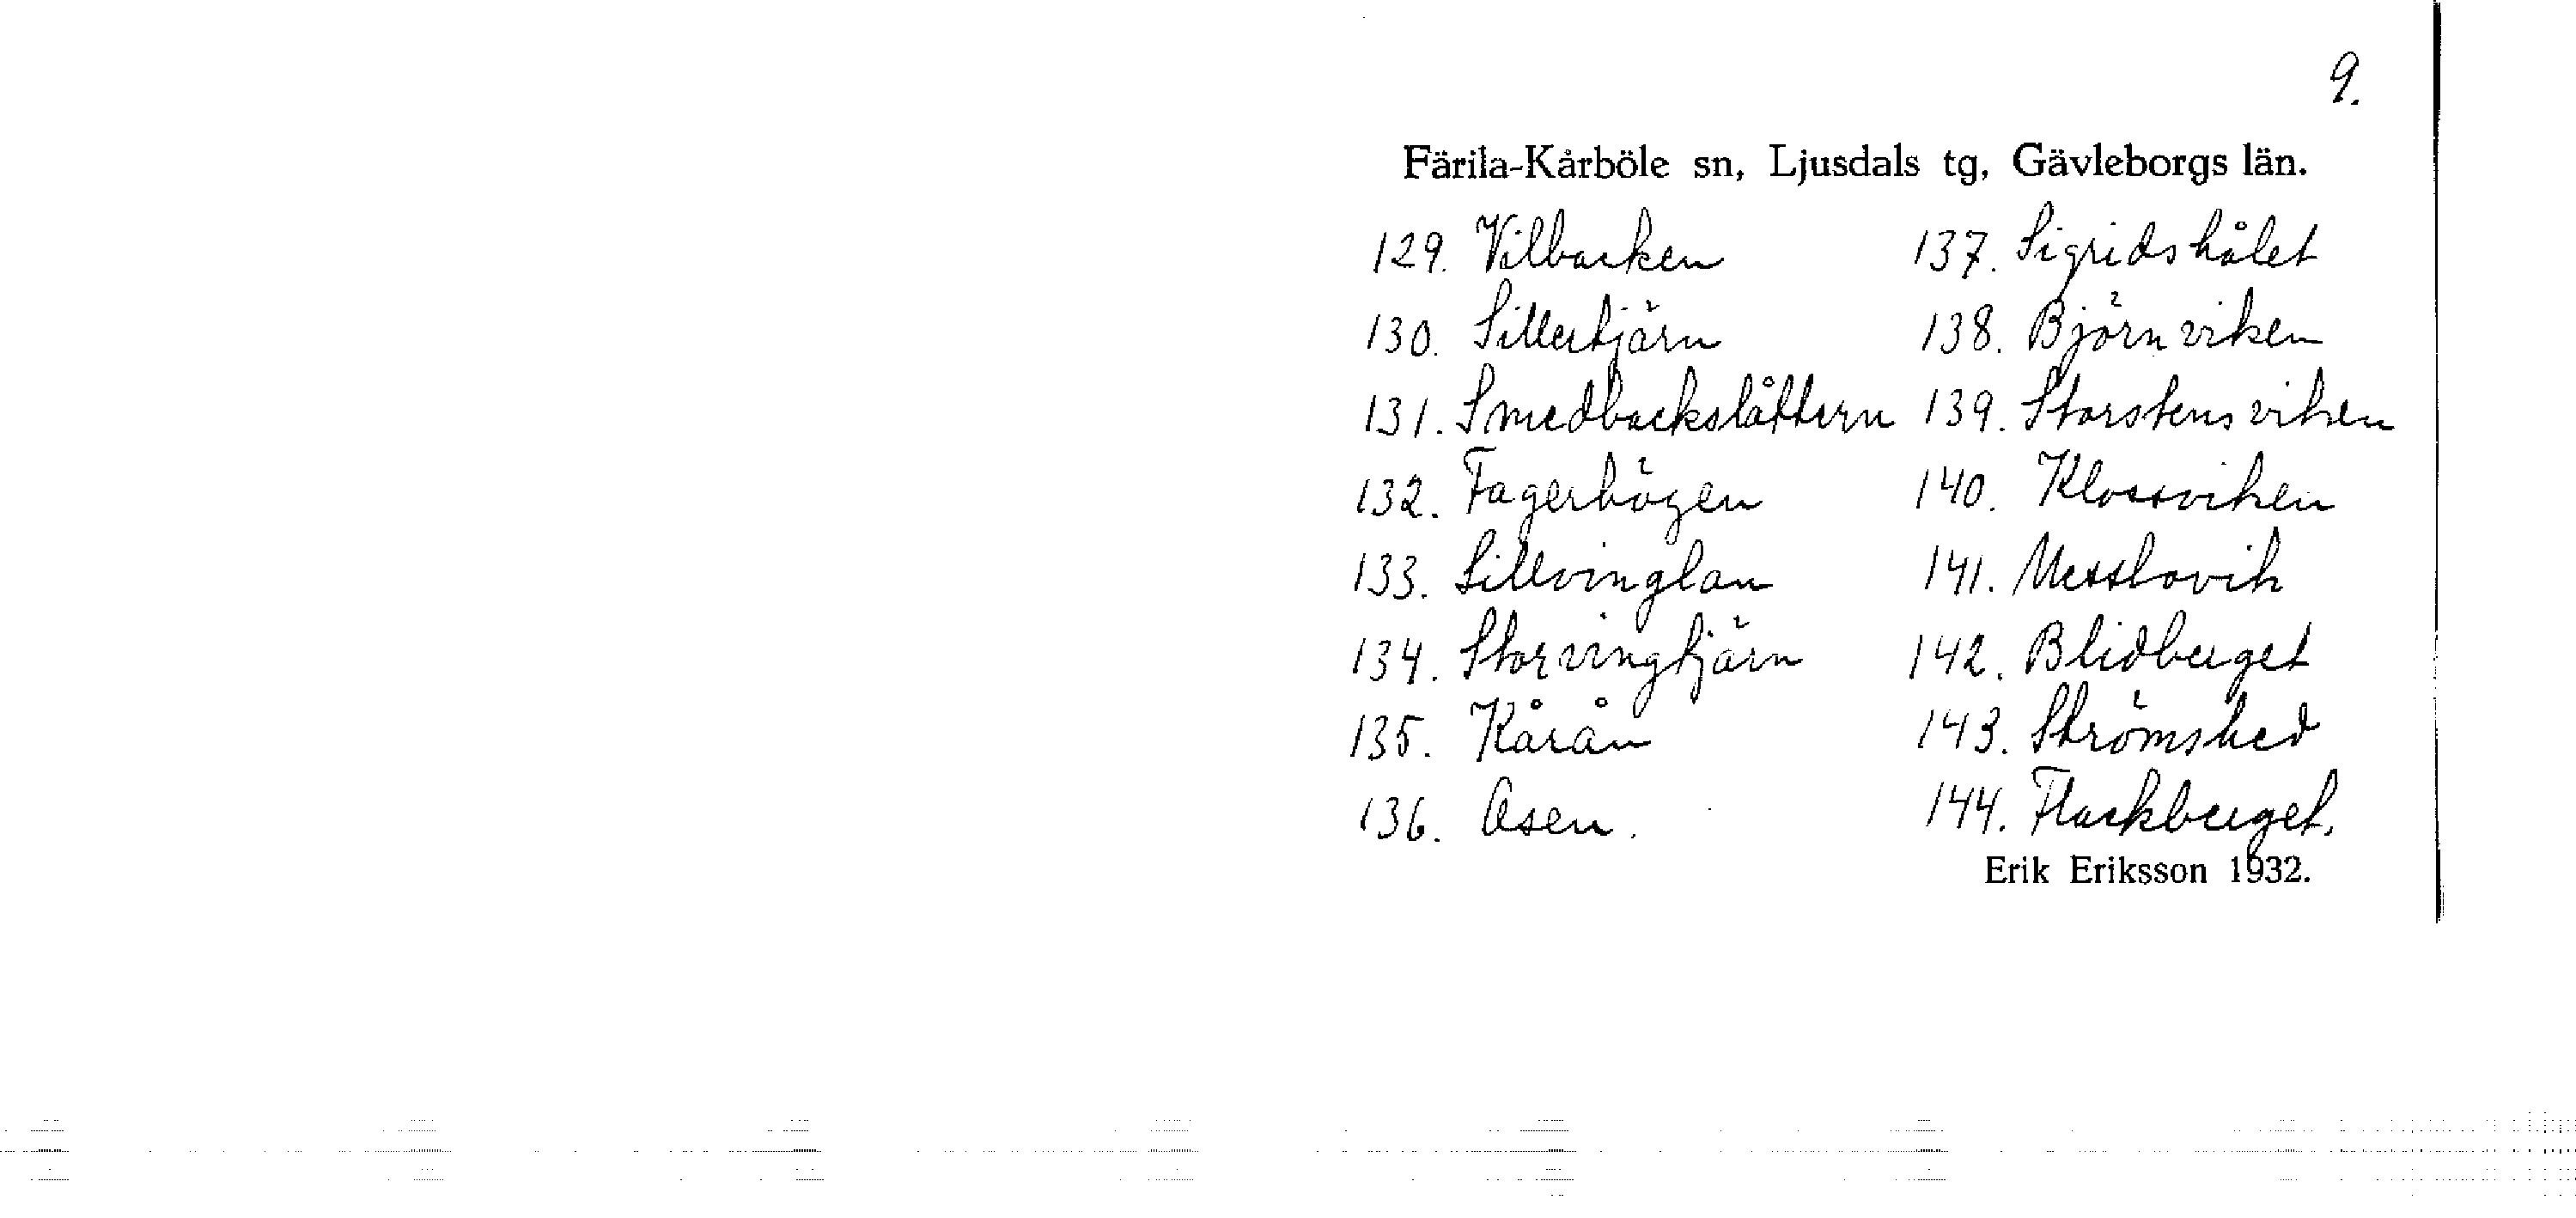 9.
Färila-Kårböle sn, Ljusdals tg, Gävleborgs län.
129. Vilbacken
130. Sillertjärn
131. Smedbackslåttern
132. Fagerhögen
133. Lillvinglan
134. Storvingtjärn
135. Kårån
136. Åsen.
137. Sigridshålet
138. Björnviken
139. Storstensviken
140. Klossviken
141. Messlovik
142. Blidberget
143. Strömshed
144. Flackberget.
Erik Eriksson 1932.